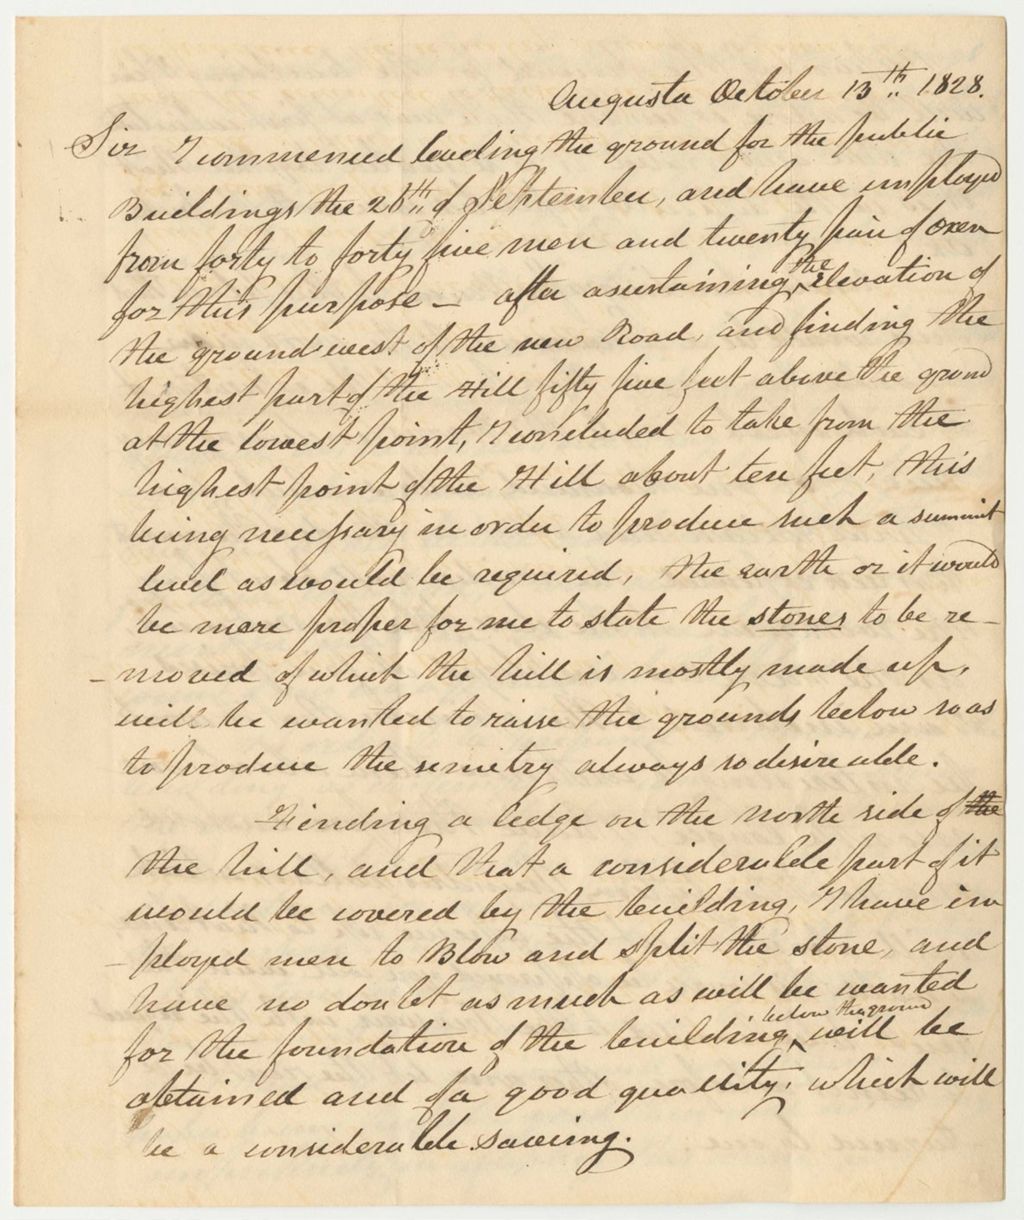 Augusta October 13th 1828.
Sir I commenced leveling the ground for the public
Buildings the 26th of September, and have employed
from forty to forty five men and twenty pair of oxen
for this purpose – after ascertaining the elevation of
the ground west of the new Road, and finding the
highest part of the Hill fifty five feet above the ground
at the lowest point, I concluded to take from the
highest point of the Hill about ten feet, this
being necessary in order to produce such a summit
level as would be required, the earth or it would
be more proper for me to state the stones to be re-
-moved of which the hill is mostly made up,
will be wanted to raise the grounds below so as
to produce the simetry always so desireable.
Finding a ledge on the north side of the
the hill, and that a considerable part of it
would be covered by the building, I have im
-ployed men to Blow and split the stone, and
have no doubt as much as will be wanted
for the foundation of the building below the ground will be
obtained and of a good quality, which will
be a considerable saveing.